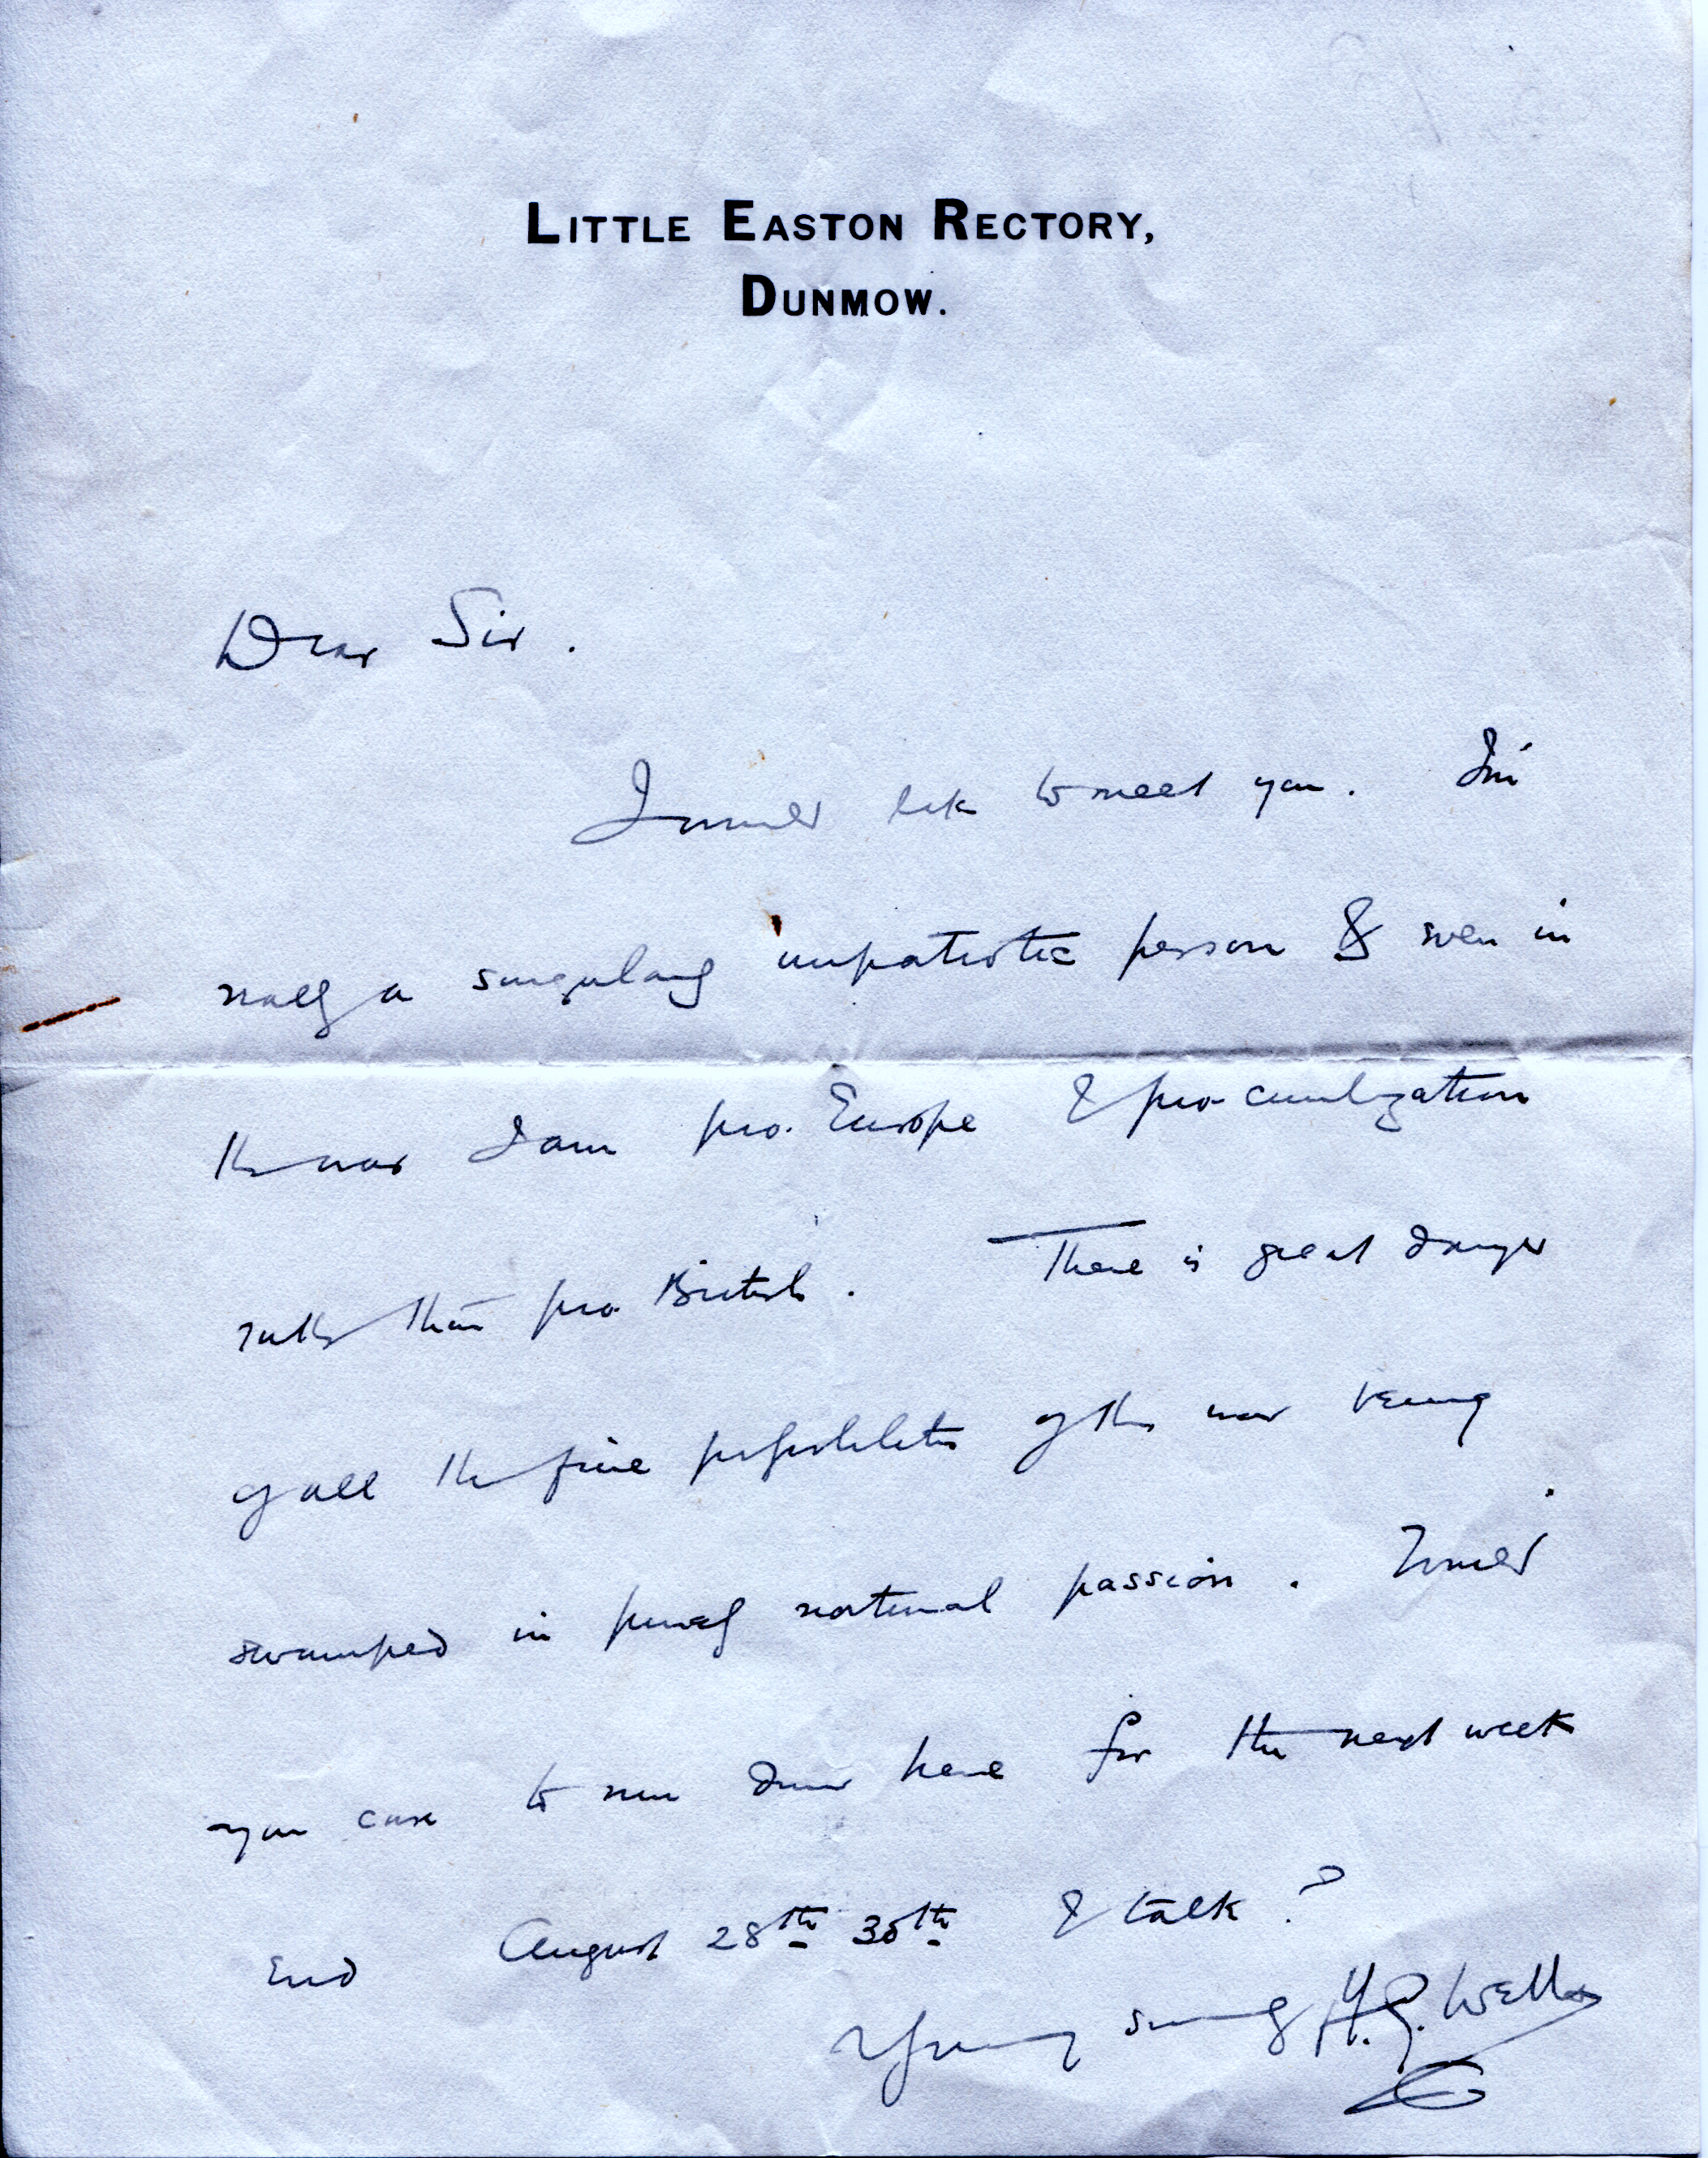 LITTLE EASTON RECTORY,
DUNMOW.
Dear Sir.
I would like to meet you. I'm
really a singularly unpatriotic person & even in
the war I am pro-Europe & pro-civilization
rather than pro British. There is great danger
of all the fine possibilities of this war being
swamped in purely national passion. Would
you care to run down here for the next week
end August 28th 30th & talk?
Yours sincerely H.G. Wells